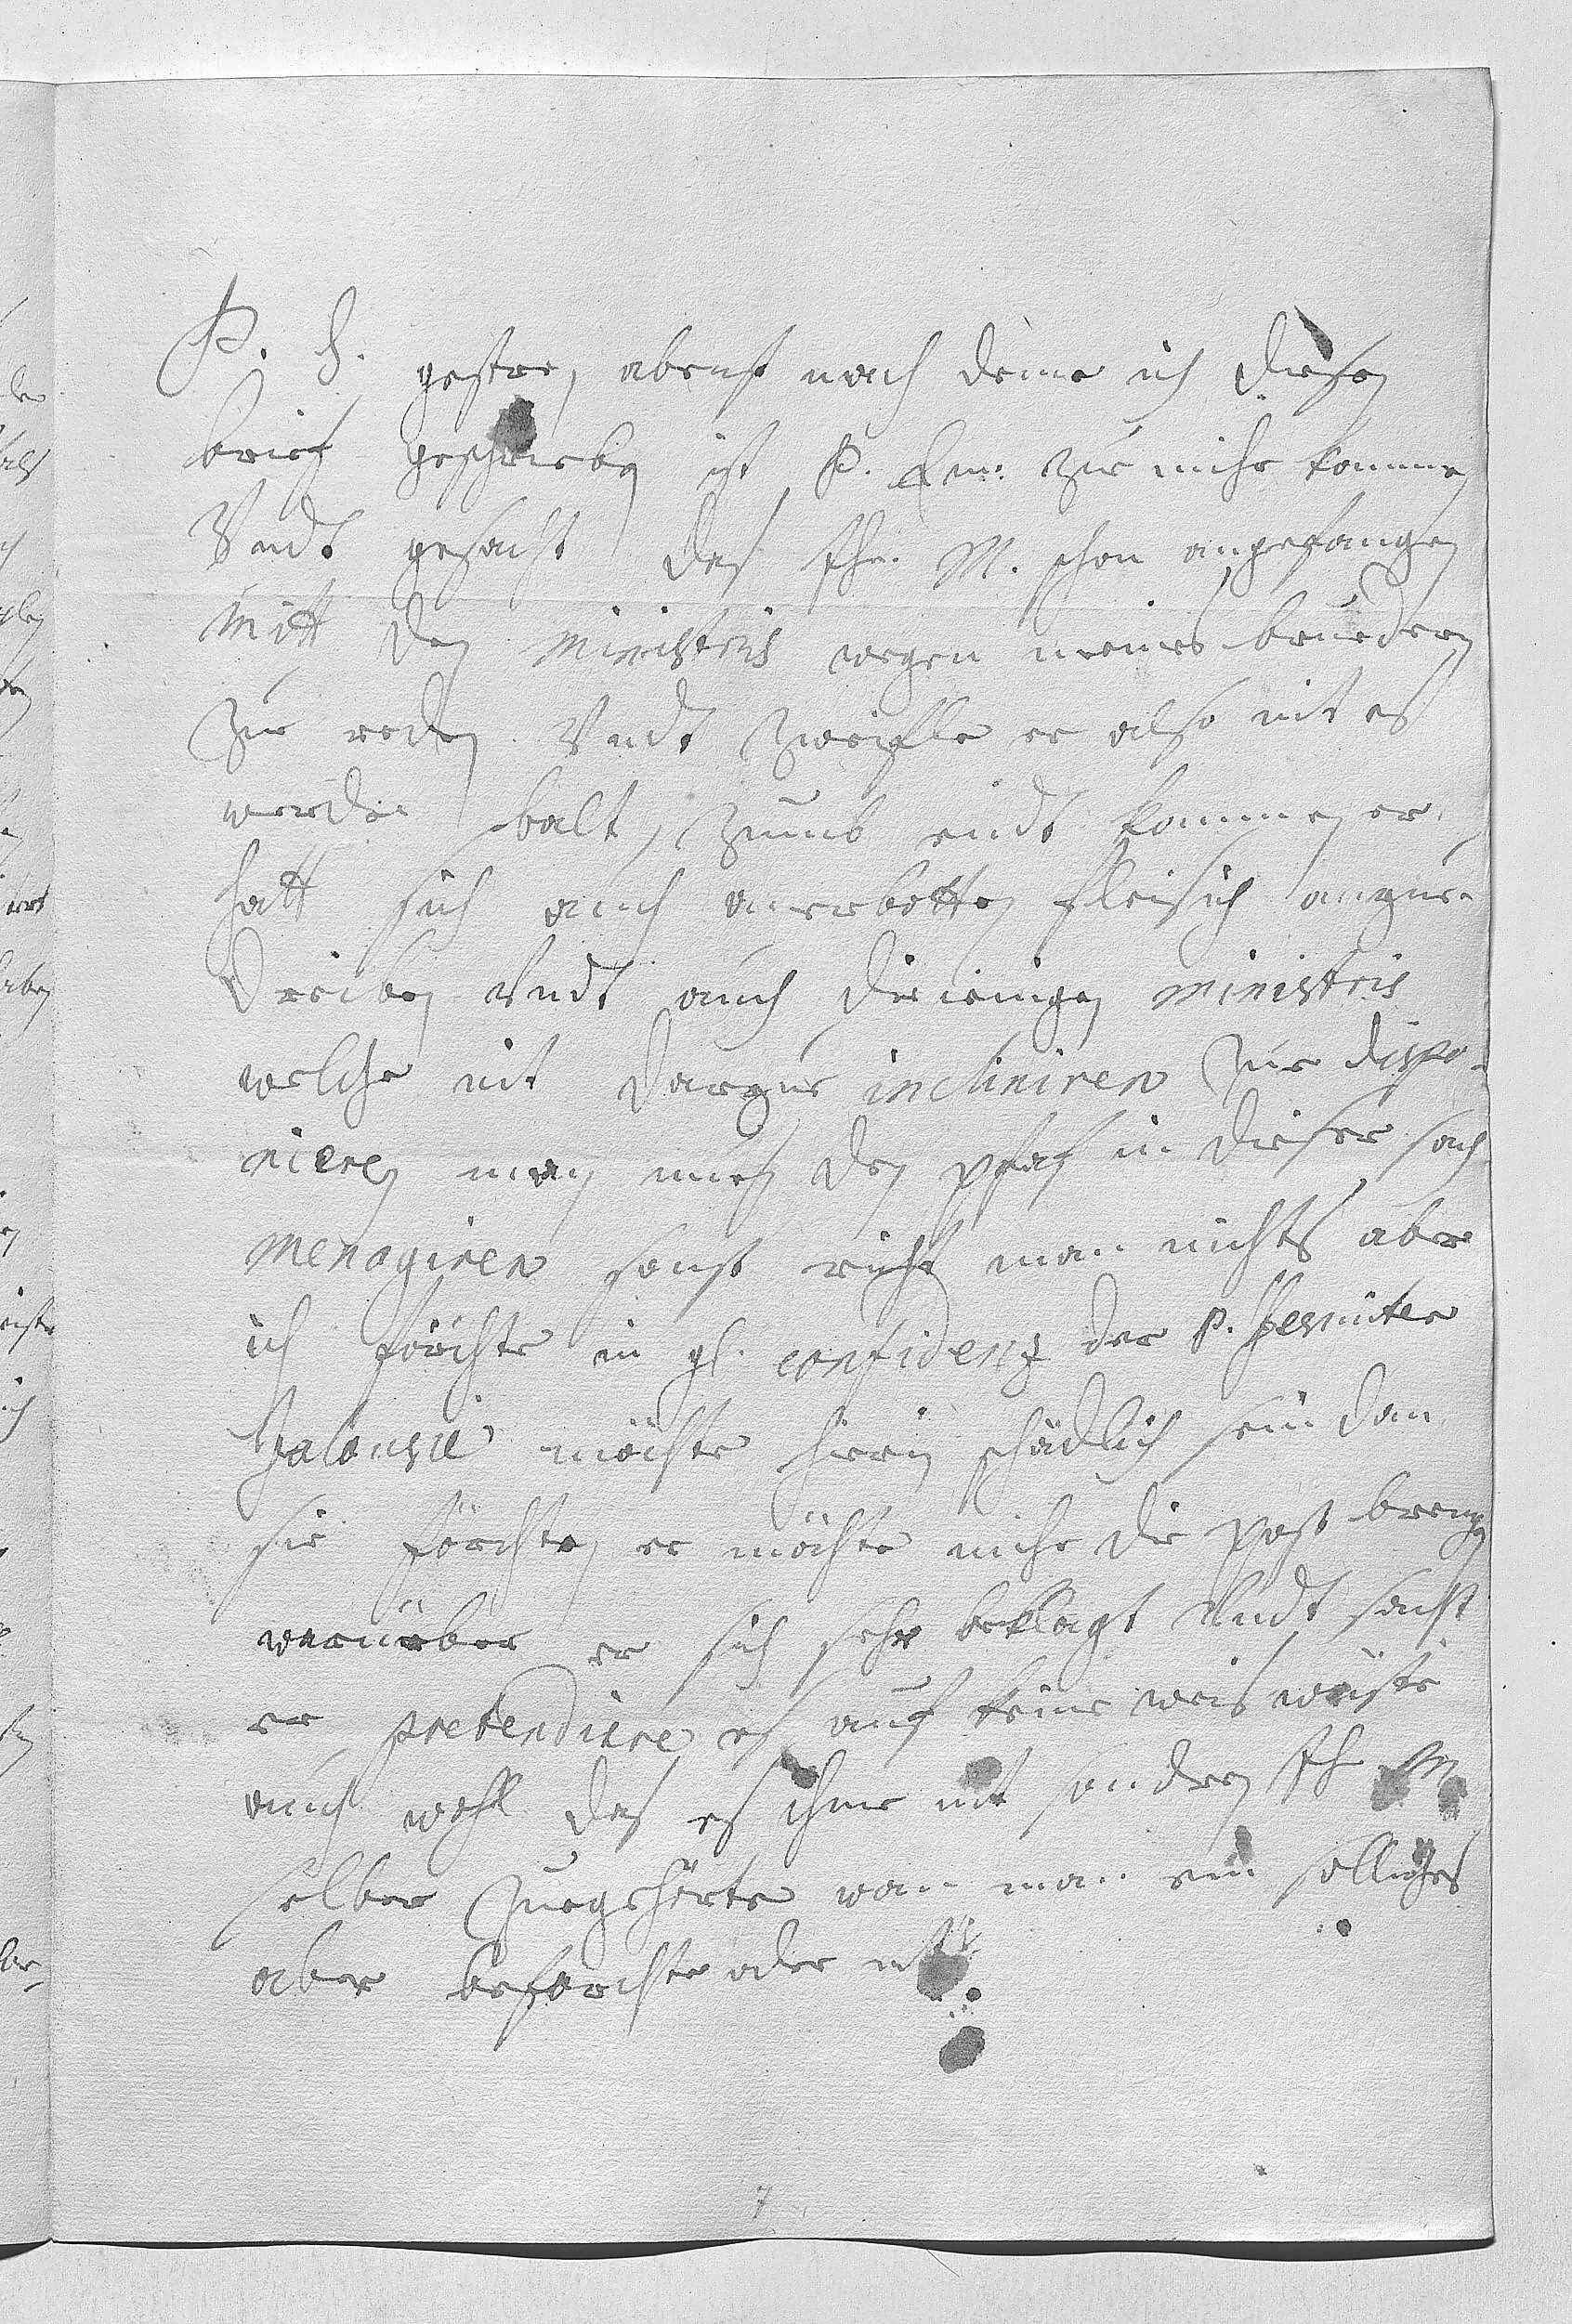 P. S. gestern abenst nach deme ich diesen
brief geschrieben ist P. Em: zu mihr kommen
Undt gesacht das Ihr M. schon angefangen
mitt den ministris wegen meines bruedern
zu reden Undt zweifle er also nit es
werde balt zumb endt kommen er
hatt sich auch anerbotten fleisich anzu-
dreiben Undt auch die ienigen ministris
welche nit darzue incliniren zue dispo-
nieren man mus den pfaf in dieser sach
menagiren sonst richt man nichts aber
ich förchte in gh. confidenz der P. Jesuiter
Jalousie möchte hierin schädlich sein dan
sie förchten er möchte mihr die post brengen
warüeber er sich sehr beklagt Undt sachst
er pretendiere es auf keine weis wüste
auch wohl das es ihme nit sondern Ih M
selber zuegehörte wan man ein solliches
aber beforchte oder nit
7